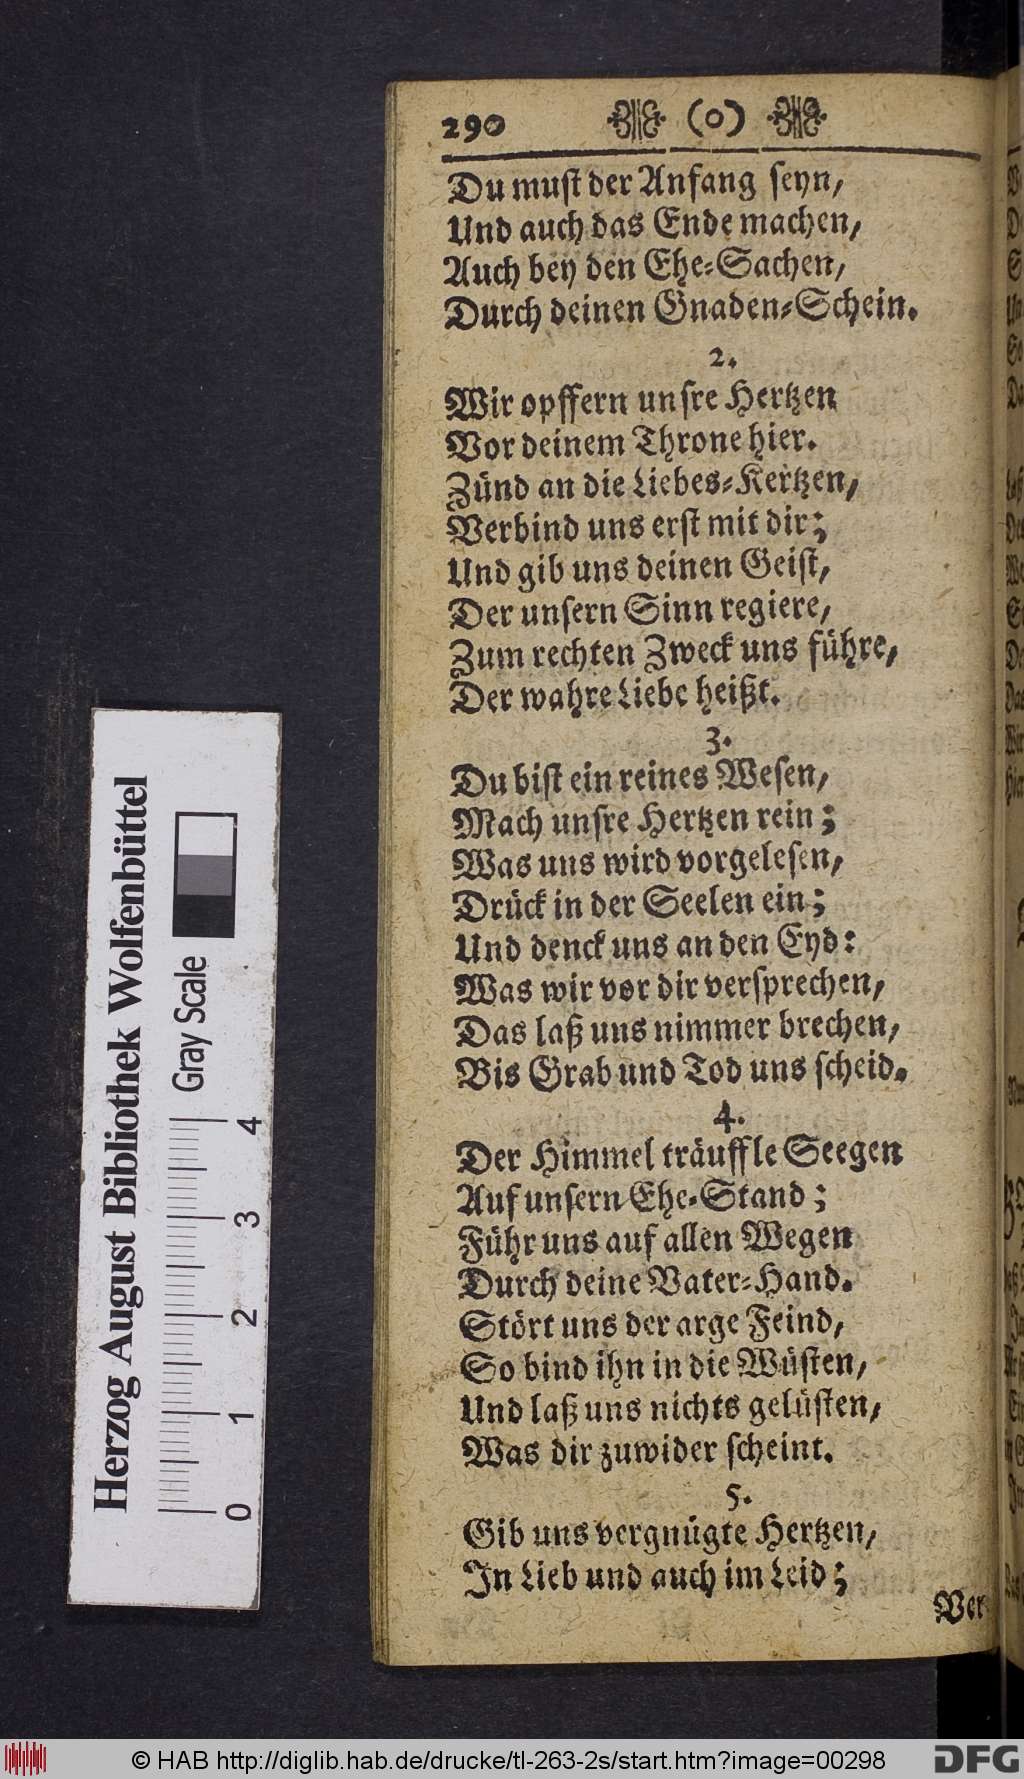 290 (o)
Du must der Anfang seyn,
Und auch das Ende machen,
Auch bey den Ehe-Sachen,
Durch deinen Gnaden-Schein.
2.
Wir opffern unsre Hertzen
Vor deinem Throne hier.
Zünd an die Liebes-Kertzen,
Verbind uns erst mit dir;
Und gib uns deinen Geist,
Der unsern Sinn regiere,
Zum rechten Zweck uns führe,
Der wahre Liebe heißt.
3.
Du bist ein reines Wesen,
Mach unsre Hertzen rein;
Was uns wird vorgelesen,
Drück in der Seelen ein;
Und denck uns an den Eyd:
Was wir vor dir versprechen,
Das laß uns nimmer brechen,
Bis Grab und Tod uns scheid.
4.
Der Himmel träuffle Seegen
Auf unsern Ehe-Stand;
Führ uns auf allen Wegen
Durch deine Vater-Hand.
Stört uns der arge Feind,
So bind ihn in die Wüsten,
Und laß uns nichts gelüsten,
Was dir zuwider scheint.
5.
Gib uns vergnügte Hertzen,
In Lieb und auch im Leid;
Ver-
Herzog August Bibliothek Wolfenbüttel
Gray Scale
0 1 2 3 4
© HAB http://diglib.hab.de/drucke/tl-263-2s/start.htm?image=00298
DFG